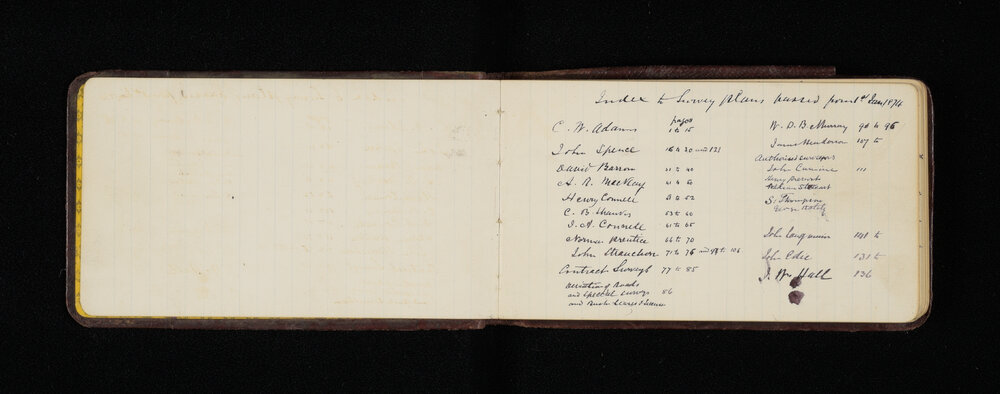 Index to Survey plans passed from 1st Jan 1874
pages
C. W. Adams 1 to 15
John Spence 16 to 30 and 121
David Barron 31 to 40
A. R. MacKay 41 to 50
Henry Connell 51 to 52
C. B. 53 to 60
J. A. Connell 61 to 65
Norman Prentice 66 to 70
John Strauchon 71 to 76 and 98 to 106
Contract Surveys 77 to 85
Deviation of Roads
and Special surveys 86
and Bush
W. D. B. Murray 90 to 96
James Henderson 107 to
Authorised surveyors
John 111
William Stewart
S. Thompson
John Langmuir 141 to
John Edie 131 to
J. W. Hall 136